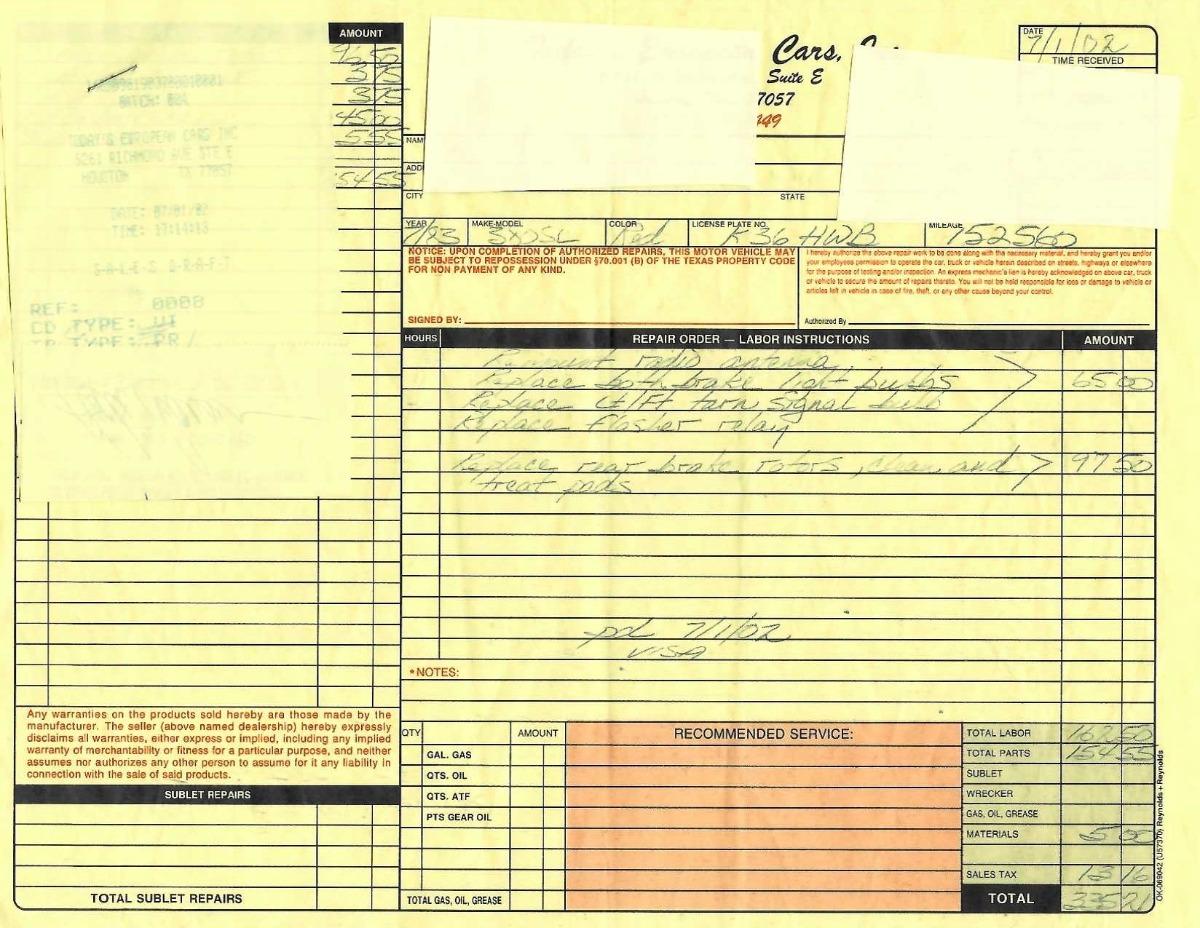 AMOUNT
96 50
3 75
3 75
45 00
5 55
154 55
BATCH: 001
TODAY'S EUROPEAN CARS INC
5261 RICHMOND AVE STE E
HOUSTON TX 77057
DATE: 07/01/02
TIME: 17:14:13
S-A-L-E-S D-R-A-F-T
REF: 0008
CD TYPE: VI
TR TYPE: PR
Cars,
Suite E
7057
449
DATE
7/1/02
TIME RECEIVED
NAM
ADD
CITY STATE
YEAR MAKE-MODEL COLOR LICENSE PLATE NO. MILEAGE
7/93 300SL Red K36 HWB 152560
NOTICE: UPON COMPLETION OF AUTHORIZED REPAIRS, THIS MOTOR VEHICLE MAY
BE SUBJECT TO REPOSSESSION UNDER §70.001 (B) OF THE TEXAS PROPERTY CODE
FOR NON PAYMENT OF ANY KIND.
SIGNED BY:
I hereby authorize the above repair work to be done along with the necessary material, and hereby grant you and/or
your employees permission to operate the car, truck or vehicle herein described on streets, highways or elsewhere
for the purpose of testing and/or inspection. An express mechanic's lien is hereby acknowledged on above car, truck
or vehicle to secure the amount of repairs thereto. You will not be held responsible for loss or damage to vehicle or
articles left in vehicle in case of fire, theft, or any other cause beyond your control.
Authorized By
HOURS REPAIR ORDER — LABOR INSTRUCTIONS AMOUNT
radio antenna
Replace both brake light bulbs 65 00
Replace turn signal bulb
Replace flasher relay
Replace rear brake rotors, clean and 97 50
treat pads
pd 7/1/02
VISA
•NOTES:
Any warranties on the products sold hereby are those made by the
manufacturer. The seller (above named dealership) hereby expressly
disclaims all warranties, either express or implied, including any implied
warranty of merchantability or fitness for a particular purpose, and neither
assumes nor authorizes any other person to assume for it any liability in
connection with the sale of said products.
SUBLET REPAIRS
TOTAL SUBLET REPAIRS
QTY AMOUNT
GAL. GAS
QTS. OIL
QTS. ATF
PTS GEAR OIL
TOTAL GAS, OIL, GREASE
RECOMMENDED SERVICE:
TOTAL LABOR 162 50
TOTAL PARTS 154 55
SUBLET
WRECKER
GAS, OIL, GREASE
MATERIALS 5 00
SALES TAX 13 16
TOTAL 335 21
OK-069042 (U57370) Reynolds + Reynolds